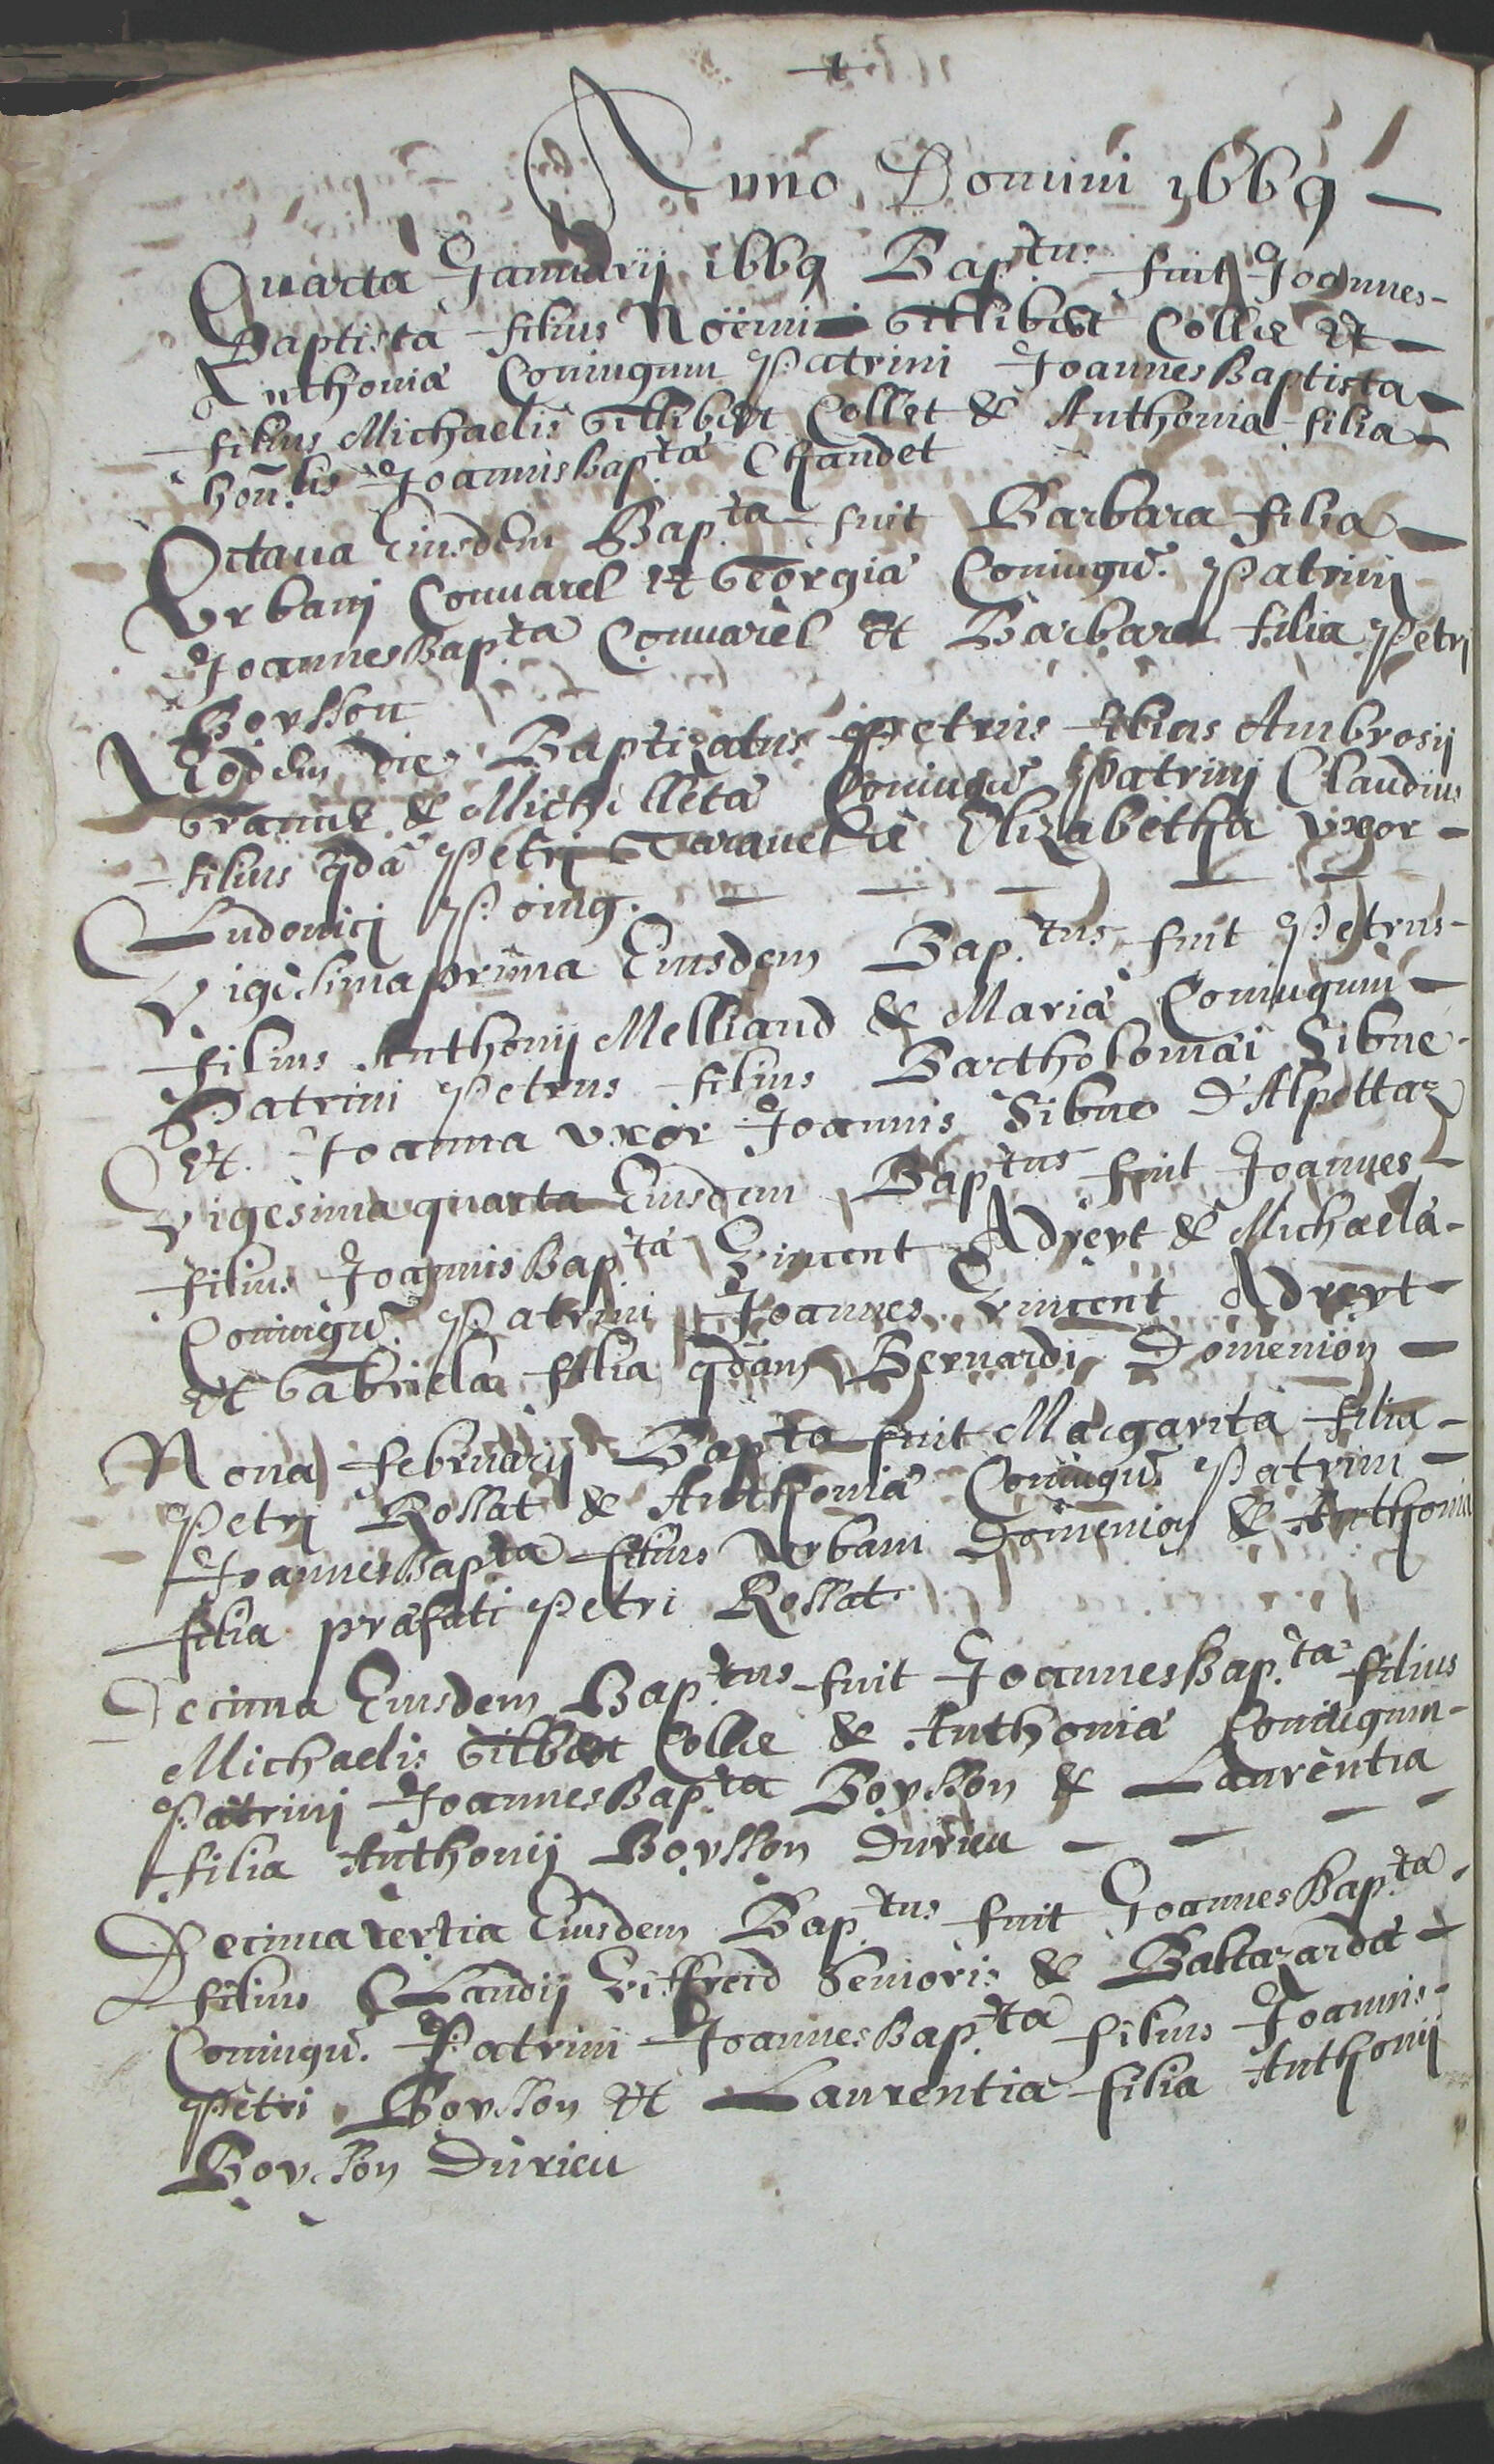 Anno Domini 1669
Quarta Januarij 1669 Bap.tus fuit Joannes
Baptista filius Noëmi Gillibert Collie et
Anthonia Coniugum Patrini Joannes Baptista
filius Michaelis Gillibert Collet & Anthonia filia
hon.lis Joannis Bap.ta Chaudet
Octaua Eiusdem Bap.ta fuit Barbara filia
Vrbanj Conuarel et Georgia Coniugũ. Patrinj
Joannes Bap.ta Conuarel et Barbara filia Petrj
Boysson
Eodem die Baptizatus Petrus filius Ambrosij
& Michilleta Coniugũ Patrinj Claudius
filius qdã Petrj Elizabetha vxor
Ludouicj
Vigesima prima Eiusdem Bap.tus fuit Petrus
filius Anthonij Melliand & Maria Coniugum
Patrini Petrus filius Bartholomæi Sibue
et Joanna vxor Joannis Sibue D'Alpettaz
Vigesima quarta Eiusdem Bap.tus fuit Joannes
filius Joannis Bap.ta Vincent Adreyt & Michaela
Coniugũ. Patrini Joannes Vincent Adreyt
et Gabriela filia qdam Bernardi Domenion
Nona februarij Bapta fuit Margarita filia
Petrj Rossat & Anthonia Coniugũ. Patrini
Joannes Bap.ta filius Vrbani Domenion & Anthonia
filia præfati Petri Rossat
Decima Eiusdem Bap.tus fuit Joannes Bap.ta filius
Michaelis Gilbert Collie & Anthonia Coniugum
Patrinj Joannes Bap.ta Boysson & Laurentia
filia Anthonij Boysson Durieu
Decima tertia Eiusdem Bap.tus fuit Joannes Bap.ta
filius Claudij Senioris & Baltazarda
Coniugũ. Patrini Joannes Bap.ta filius Joannis
Petri Boysson et Laurentia filia Anthonij
Boysson Durieu